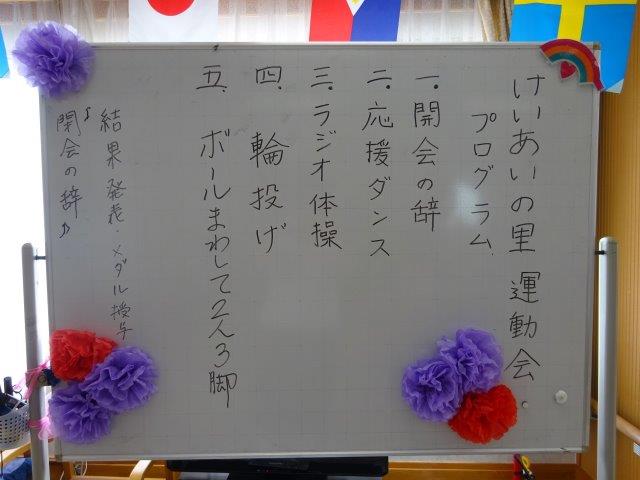 けいあいの里 運動会.
プログラム.
一. 開会の辞
二. 応援ダンス
三. ラジオ体操
四. 輪投げ
五. ボールまわして2人3脚
結果発表・メダル授与
♪閉会の辞♪